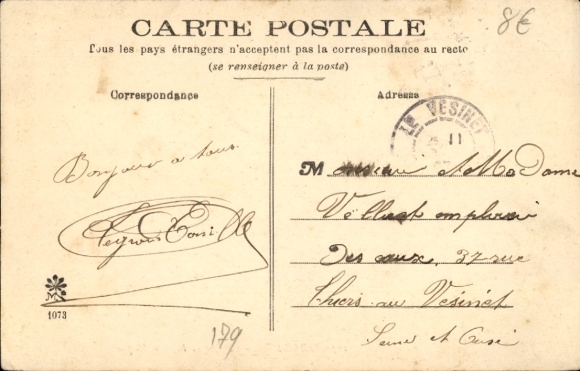 8€
CARTE POSTALE
Tous les pays étrangers n'acceptent pas la correspondance au recto
(se renseigner à la poste)
Correspondance
Adresse
LE VESINET
11
Bonjour a tous
Monsieur et MaDame
employé
Des eaux, 37 rue
Thiers au Vesinet
Seine et Oise
M
1073
179